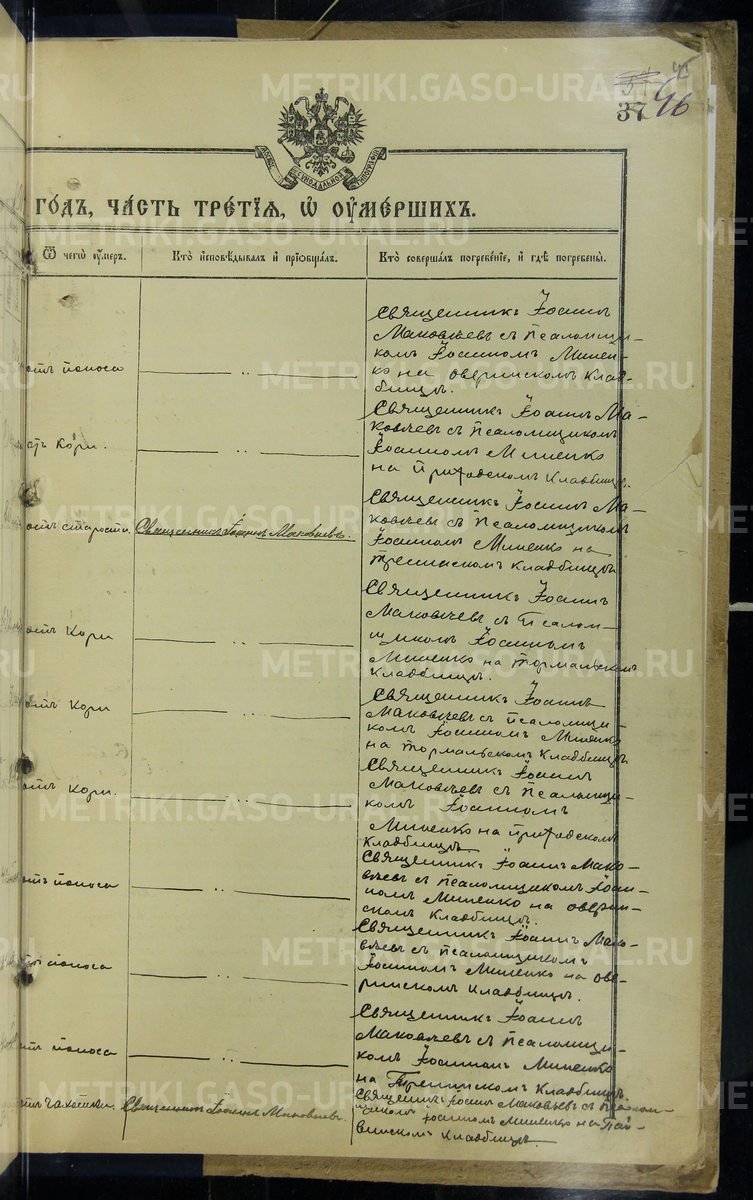 METRIKI.GASO-URAL.RU
37 46
годъ, часть третїѧ, ѡ оумершихъ.
Ѿ чегѡ оумеръ.
Кто исповѣдывалъ и прїобщалъ.
Кто совершалъ погребенїе, и гдѣ погребены.
отъ поноса
Священникъ Іоаннъ
Маковѣевъ съ псаломщи-
комъ Іоанномъ Минен-
ко на оверинскомъ клад-
бищѣ.
отъ Кори.
Священникъ Іоаннъ Ма-
ковѣевъ съ псаломщикомъ
Іоанномъ Миненко
на Приходскомъ кладбищѣ.
отъ старости
Священникъ Іоаннъ Маковѣевъ.
Священникъ Іоаннъ Ма-
ковѣевъ съ псаломщикомъ
Іоанномъ Миненко на
кладбищѣ
отъ Кори
Священникъ Іоаннъ
Маковѣевъ съ Псалом-
щикомъ Іоанномъ
Миненко на тормальскомъ
кладбищѣ.
отъ Кори
Священникъ Іоаннъ
Маковѣевъ съ псаломщи-
комъ Іоанномъ Миненко
на тормальскомъ Кладбищѣ.
отъ Кори.
Священникъ Іоаннъ
Маковѣевъ съ псаломщи-
комъ Іоанномъ
Миненко на приходскомъ
кладбищѣ
отъ поноса
Священникъ Іоаннъ Мако-
вѣевъ съ псаломщикомъ Іоан-
номъ Миненко на оверин-
скомъ кладбищѣ.
отъ поноса
Священникъ Іоаннъ Мако-
вѣевъ съ псаломщикомъ
Іоанномъ Миненко на ове-
ринскомъ кладбищѣ.
отъ поноса
Священникъ Іоаннъ
Маковѣевъ съ псаломщи-
комъ Іоанномъ Миненко
на Кладбищѣ.
отъ чахотки.
Священникъ Іоаннъ Маковѣевъ.
Священникъ Іоаннъ Маковѣевъ съ псалом-
щикомъ Іоанномъ Миненко на
кладбищѣ